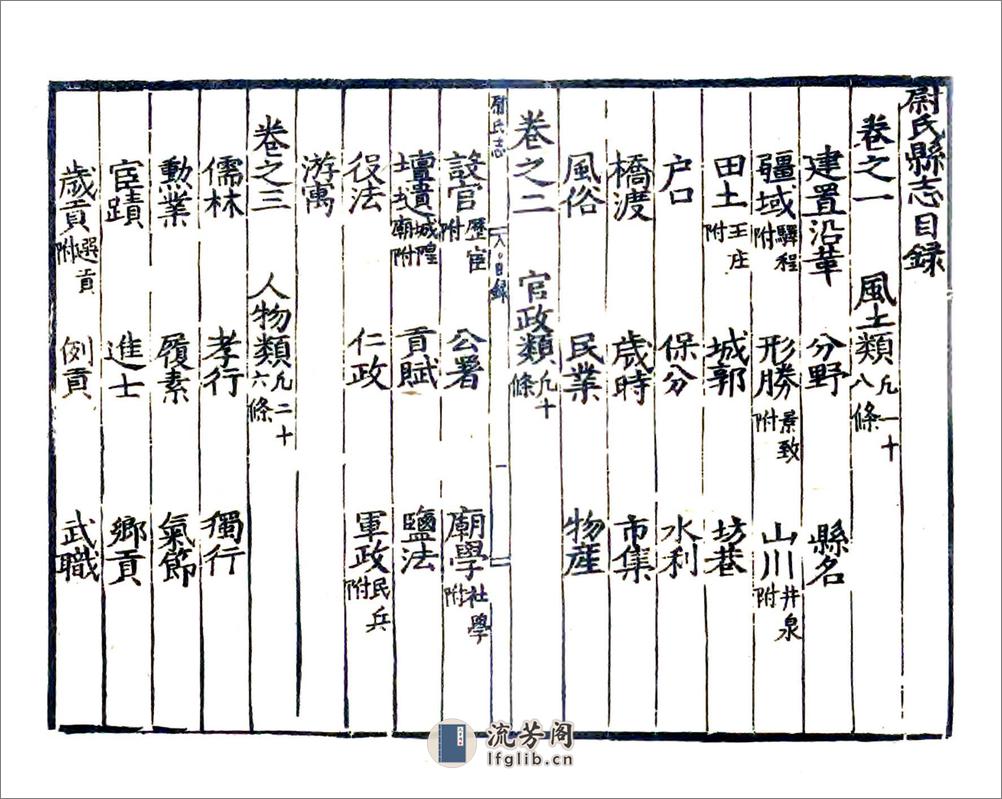 尉氏縣志目録
卷之一 風土類凡一十八條
建置沿革 分野 縣名
疆域驛程附 形勝景致附 山川井泉附
田土王庄附 城郭 坊巷
户口 保分 水利
橋渡 歲時 市集
風俗 民業 物産
卷之二 官政類凡十條
尉氏志 目録 一
設官歷宦附 公署 廟學社學附
壇遺城隍廟附 貢賦 鹽法
役法 仁政 軍政民兵附
游寓
卷之三 人物類凡二十六條
儒林 孝行 獨行
勳業 履素 氣節
宦蹟 進士 鄉貢
歲貢選貢附 例貢 武職
流芳阁
lfglib.cn